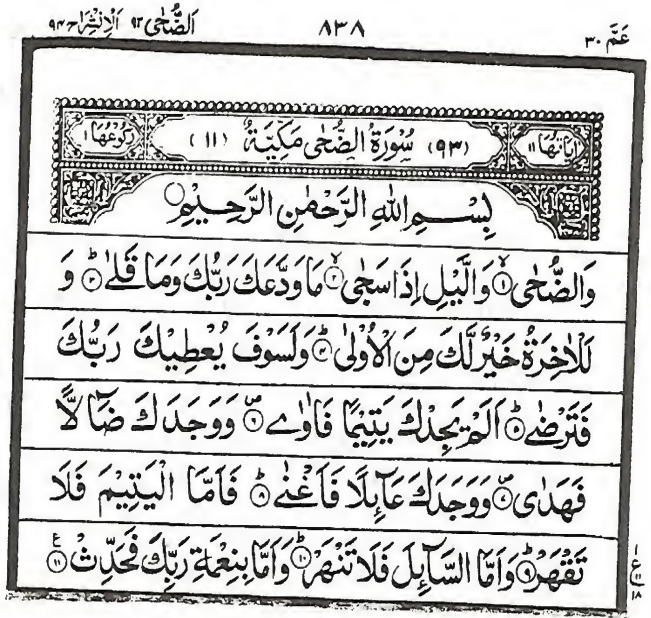 عَمَّ ٣٠ ٨٣٨ اَلضُّحٰى ٩٣ اَلْاِنْشِرَاح ٩٤
اٰيَاتُهَا ١١ (٩٣) سُوْرَةُ الضُّحٰى مَكِّيَّةٌ (١١) رُكُوْعُهَا ١
بِسْمِ اللهِ الرَّحْمٰنِ الرَّحِيْمِ
وَالضُّحٰى ۙ‏﴿١﴾ وَالَّيْلِ اِذَا سَجٰى ۙ‏﴿٢﴾ مَا وَدَّعَكَ رَبُّكَ وَمَا قَلٰى ؕ‏﴿٣﴾ وَ
لَلْاٰخِرَةُ خَيْرٌ لَّكَ مِنَ الْاُوْلٰى ؕ‏﴿٤﴾ وَلَسَوْفَ يُعْطِيْكَ رَبُّكَ
فَتَرْضٰے ؕ‏﴿٥﴾ اَلَمْ يَجِدْكَ يَتِيْمًا فَاٰوٰے ۪‏﴿٦﴾ وَوَجَدَكَ ضَآلًّا
فَهَدٰى ۪‏﴿٧﴾ وَوَجَدَكَ عَآئِلًا فَاَغْنٰے ؕ‏﴿٨﴾ فَاَمَّا الْيَتِيْمَ فَلَا
تَقْهَرْ ؕ‏﴿٩﴾ وَاَمَّا السَّآئِلَ فَلَا تَنْهَرْ ؕ‏﴿١٠﴾ وَاَمَّا بِنِعْمَةِ رَبِّكَ فَحَدِّثْ ‏﴿١١﴾ ع
١
ع ١١
١٨